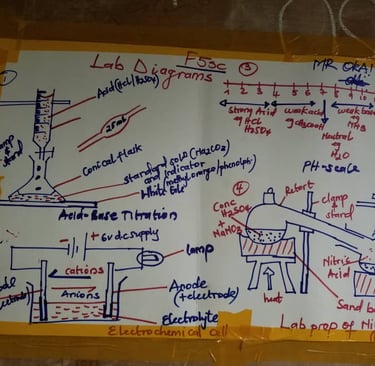 FSSc
Lab Diagrams
MR OKAI
1
Acid(Hcl/H2SO4)
25ml
stand
Conical flask
standard soln (Na2CO3)
and indicator
(methyl orange/phenolph
White tile
Acid-Base Titration
3
1 2 3 4 5 6 7 8 9 10
strong Acid
eg Hcl
H2SO4
weak acid
weak base
eg
NH3
Neutral
eg
H2O
PH-scale
4
Retort
clamp
stand
Conc
H2SO4
+
NaNO3
Nitric
Acid
heat
Sand ba
Lab prep of Ni
+ 6v dc supply
Lamp
cations
Anions
Anode
(+electrode)
Electrolyte
Electrochemical cell